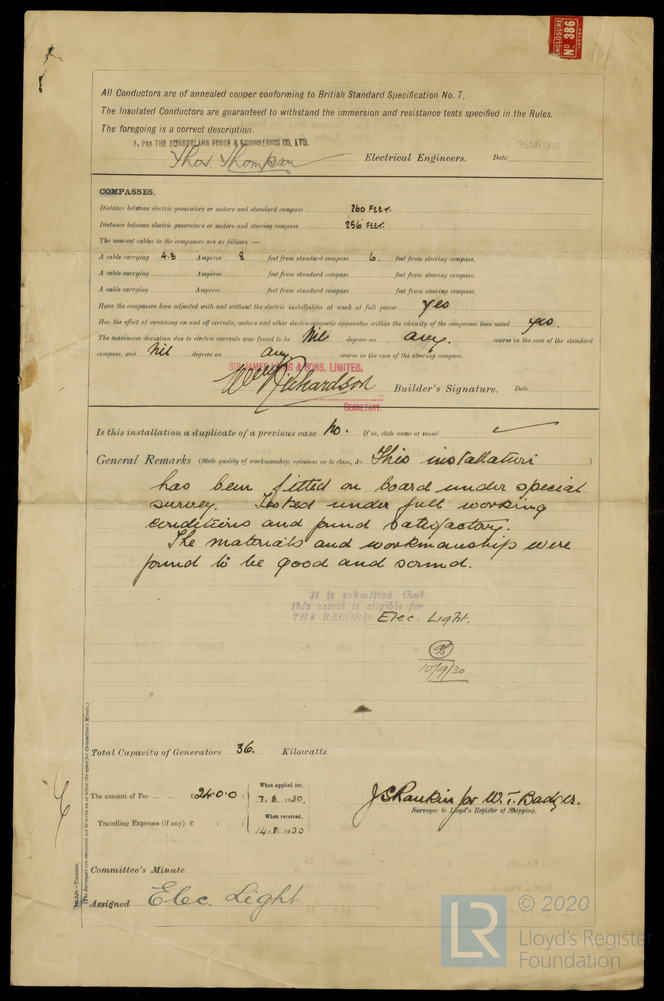 ENCLOSURE
No 386
All Conductors are of annealed copper conforming to British Standard Specification No. 7.
The Insulated Conductors are guaranteed to withstand the immersion and resistance tests specified in the Rules.
The foregoing is a correct description.
THE SUNDERLAND FORGE & ENGINEERING CO. LTD.
Thos. Thompson Electrical Engineers. Date 1930
COMPASSES.
Distance between electric generators or motors and standard compass 260 FEET.
Distance between electric generators or motors and steering compass 256 FEET.
The nearest cables to the compasses are as follows:—
A cable carrying 4.3 Ampères 8 feet from standard compass 6. feet from steering compass.
A cable carrying Ampères feet from standard compass feet from steering compass.
A cable carrying Ampères feet from standard compass feet from steering compass.
Have the compasses been adjusted with and without the electric installation at work at full power yes
Has the effect of switching on and off circuits, motors and other electro-magnetic apparatus within the vicinity of the compasses been noted yes.
The maximum deviation due to electric currents was found to be Nil degrees on any. course in the case of the standard
compass, and Nil degrees on any course in the case of the steering compass.
SIR JAMES LAING & SONS, LIMITED.
Richardson Builder's Signature. Date
SECRETARY.
Is this installation a duplicate of a previous case No. If so, state name of vessel
General Remarks (State quality of workmanship, opinions as to class, &c. This installation )
has been fitted on board under special
survey. Tested under full working
conditions and found satisfactory.
The materials and workmanship were
found to be good and sound.
It is submitted that
this vessel is eligible for
THE RECORD. Elec. Light.
10/9/30.
Total Capacity of Generators 36. Kilowatts.
The amount of Fee ... ... £24.0.0
When applied for,
7.8.1930.
Travelling Expenses (if any) £
When received,
14.8.1930
J C Rankin for W. T. Badger.
Surveyor to Lloyd's Register of Shipping.
Committee's Minute
Assigned Elec. Light
© 2020
LR
Lloyd's Register
Foundation